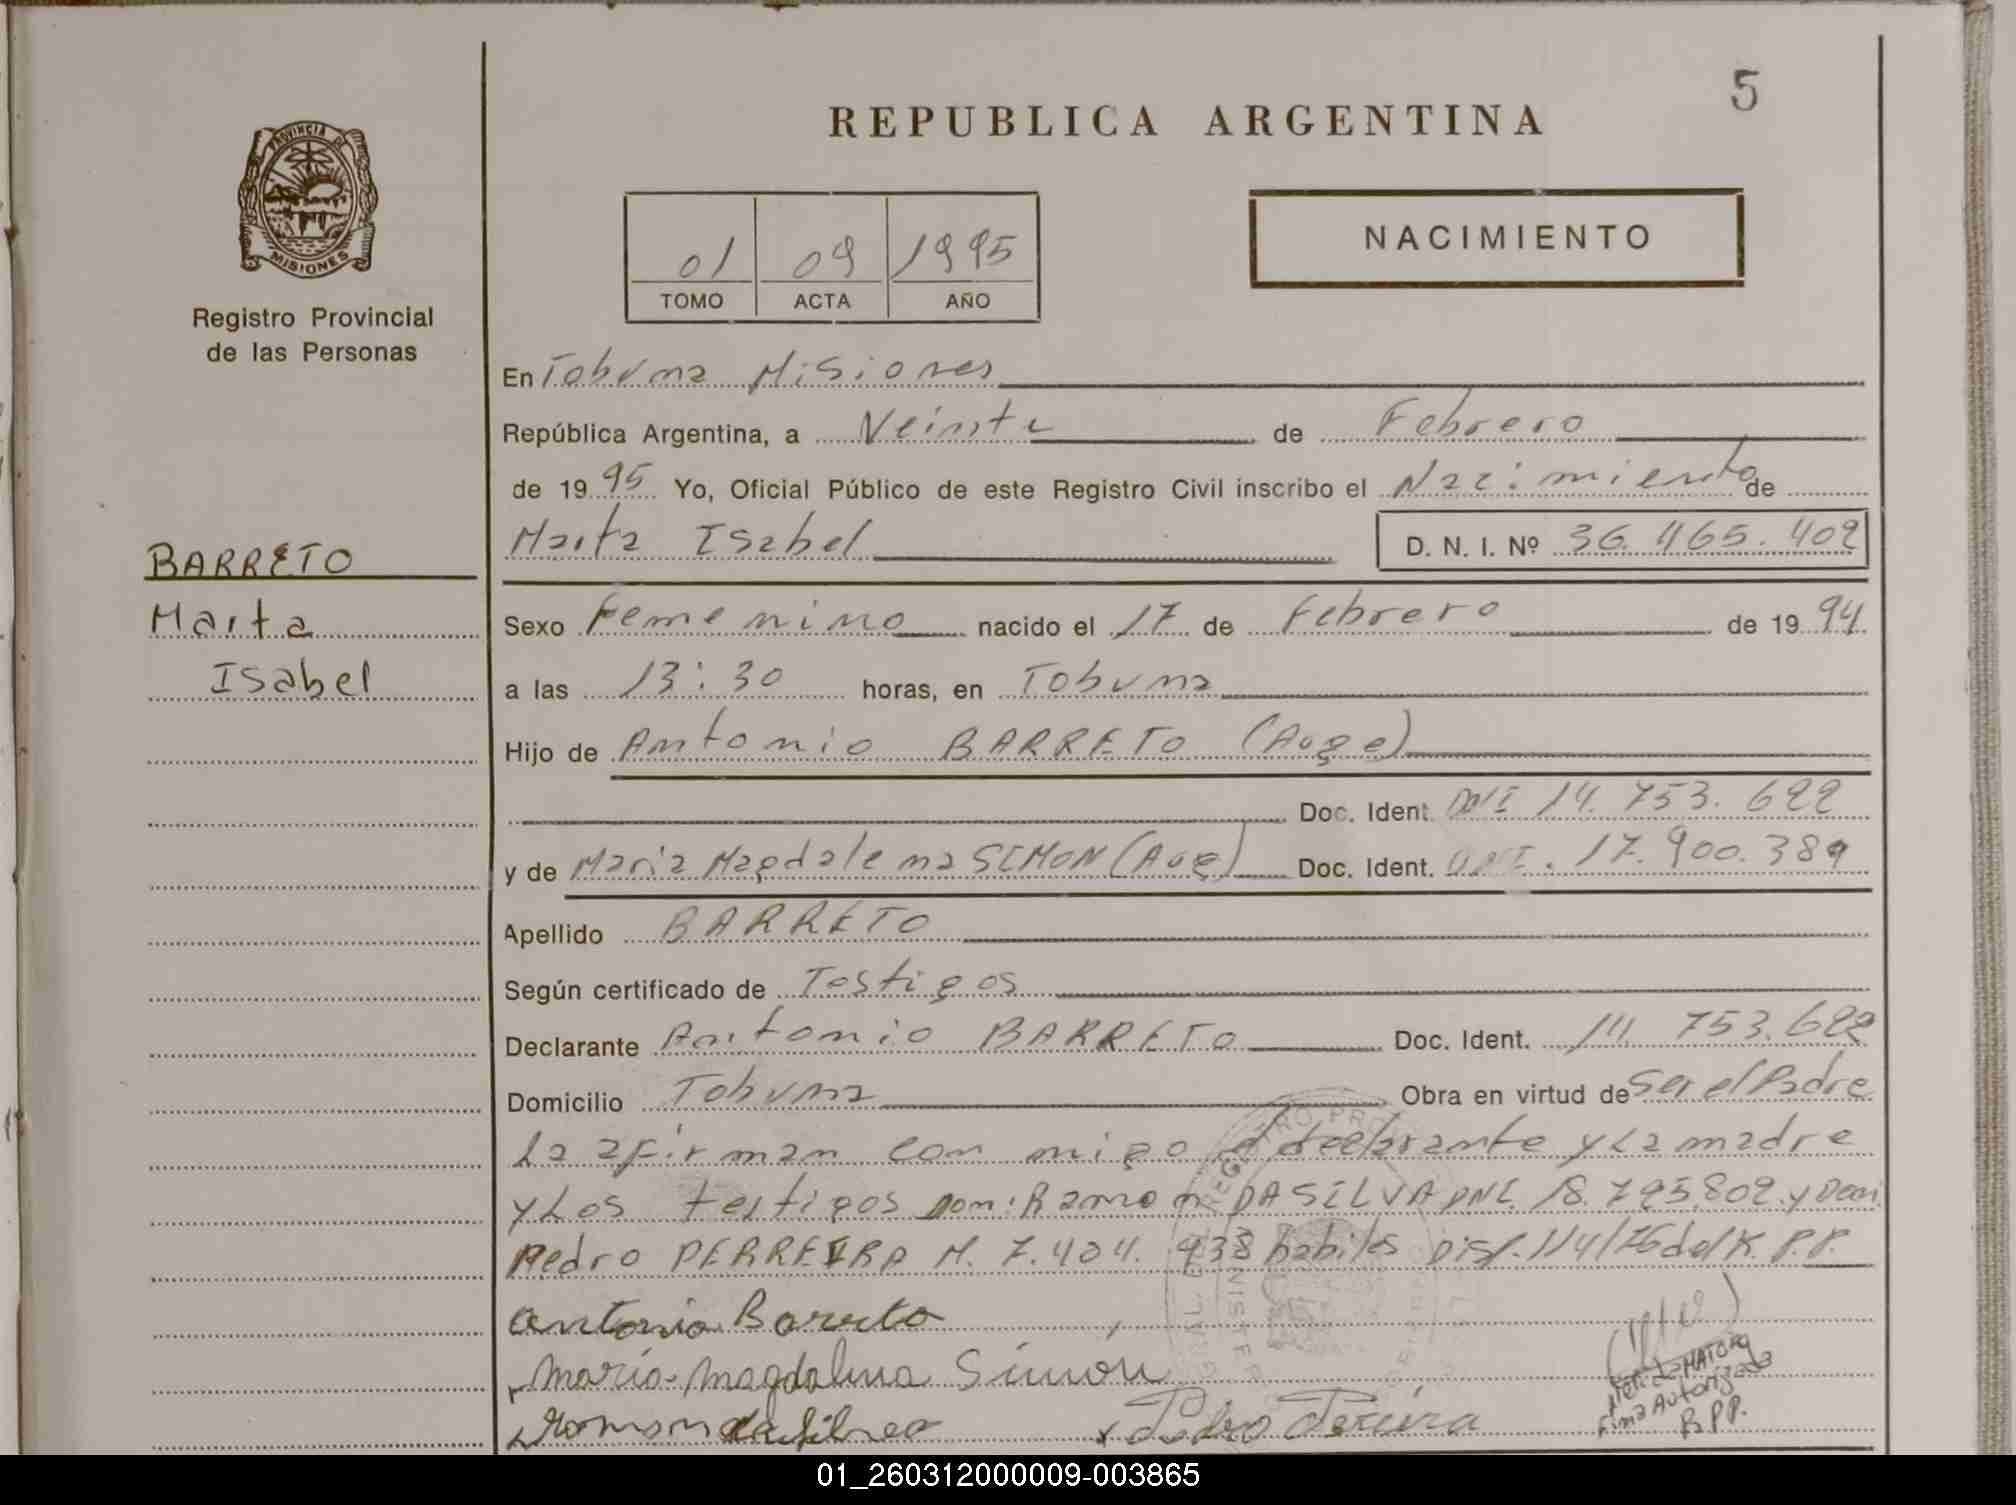 5
REPUBLICA ARGENTINA
PROVINCIA DE
MISIONES
Registro Provincial
de las Personas
01 09 1995
TOMO ACTA AÑO
NACIMIENTO
En Tobuna Misiones
República Argentina, a Veinte de Febrero
de 19 95 Yo, Oficial Público de este Registro Civil inscribo el Nacimiento de
BARRETO
Marta Isabel D. N. I. Nº 36.465.402
Marta
Isabel
Sexo Femenino nacido el 17 de Febrero de 19 94
a las 13:30 horas, en Tobuna
Hijo de Antonio BARRETO (Arge)
Doc. Ident. DNI 14.753.622
y de Maria Magdalena SIMON (Arg) Doc. Ident. DNI. 17.900.389
Apellido BARRETO
Según certificado de Testigos
Declarante Antonio BARRETO Doc. Ident. 14.753.622
Domicilio Tobuna Obra en virtud de Ser el Padre
La afirman con migo declarante y La madre
y Los testigos Don: Ramon DA SILVA DNI. 18.795.802. y Don
Pedro PERREIRA M. 7.404.938 habiles Disp. 114/76 del R.P.P.
Antonio Barreto
Maria Magdalena Simon
Ramon da Silva Pedro Pereira
Firma Autorizada
R.P.P.
01_260312000009-003865